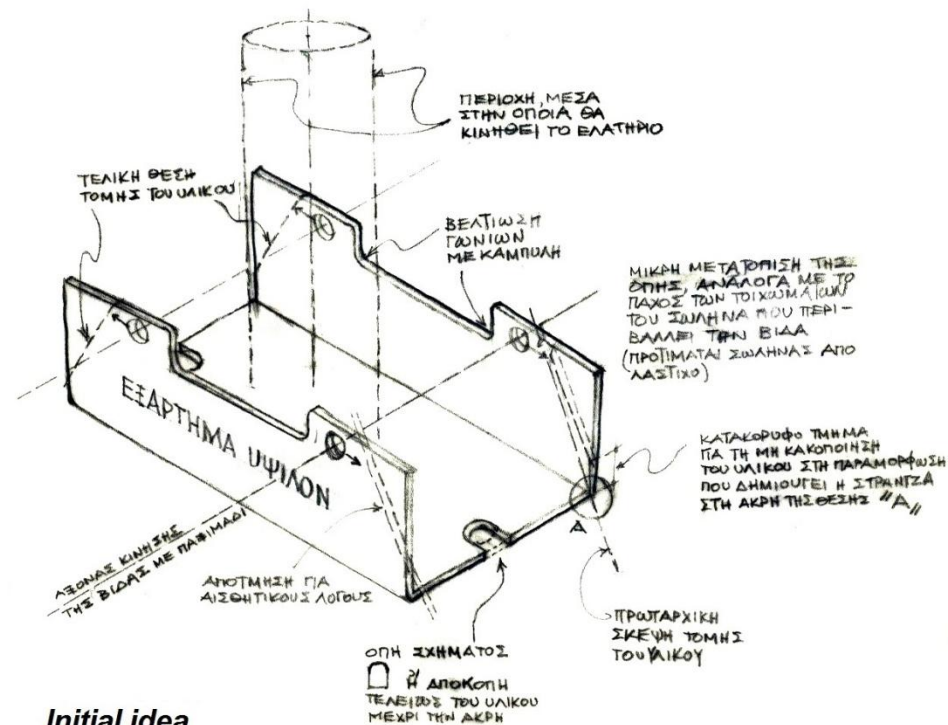 ΠΕΡΙΟΧΗ, ΜΕΣΑ
ΣΤΗΝ ΟΠΟΙΑ ΘΑ
ΚΙΝΗΘΕΙ ΤΟ ΕΛΑΤΗΡΙΟ
ΤΕΛΙΚΗ ΘΕΣΗ
ΤΟΜΗΣ ΤΟΥ ΥΛΙΚΟΥ
ΒΕΛΤΙΩΣΗ
ΓΩΝΙΩΝ
ΜΕ ΚΑΜΠΥΛΗ
ΜΙΚΡΗ ΜΕΤΑΤΟΠΙΣΗ ΤΗΣ
ΟΠΗΣ, ΑΝΑΛΟΓΑ ΜΕ ΤΟ
ΠΑΧΟΣ ΤΩΝ ΤΟΙΧΩΜΑΤΩΝ
ΤΟΥ ΣΩΛΗΝΑ ΠΟΥ ΠΕΡΙ-
ΒΑΛΛΕΙ ΤΗΝ ΒΙΔΑ
(ΠΡΟΤΙΜΑΤΑΙ ΣΩΛΗΝΑΣ ΑΠΟ
ΛΑΣΤΙΧΟ)
ΕΞΑΡΤΗΜΑ ΥΨΙΛΟΝ
ΚΑΤΑΚΟΡΥΦΟ ΤΜΗΜΑ
ΓΙΑ ΤΗ ΜΗ ΚΑΚΟΠΟΙΗΣΗ
ΤΟΥ ΥΛΙΚΟΥ ΣΤΗ ΠΑΡΑΜΟΡΦΩΣΗ
ΠΟΥ ΔΗΜΙΟΥΓΕΙ Η ΣΤΡΑΝΤΖΑ
ΣΤΗ ΑΚΡΗ ΤΗΣ ΘΕΣΗΣ "Α"
Α
ΑΞΟΝΑΣ ΚΙΝΗΣΗΣ
ΤΗΣ ΒΙΔΑΣ ΜΕ ΠΑΞΙΜΑΔΙ
ΑΠΟΤΜΗΣΗ ΓΙΑ
ΑΙΣΘΗΤΙΚΟΥΣ ΛΟΓΟΥΣ
ΠΡΩΤΑΡΧΙΚΗ
ΣΚΕΨΗ ΤΟΜΗΣ
ΤΟΥ ΥΛΙΚΟΥ
ΟΠΗ ΣΧΗΜΑΤΟΣ
Ή ΑΠΟΚΟΠΗ
ΤΕΛΕΙΩΣ ΤΟΥ ΥΛΙΚΟΥ
ΜΕΧΡΙ ΤΗΝ ΑΚΡΗ
Initial idea